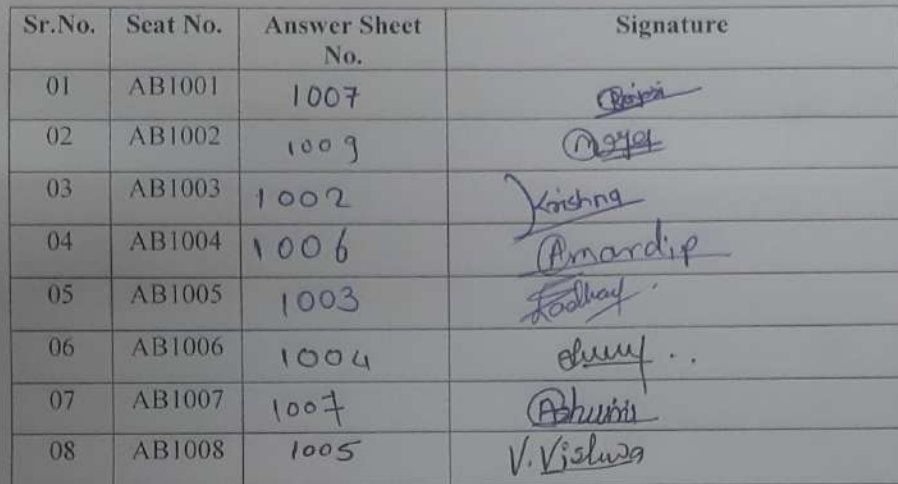 Sr.No. Seat No. Answer Sheet Signature
No.
01 AB1001 1007
02 AB1002 1009
03 AB1003 1002 Krishna
04 AB1004 1006 Amardip
05 AB1005 1003
06 AB1006 1004
07 AB1007 1007
08 AB1008 1005 V. Vishwa